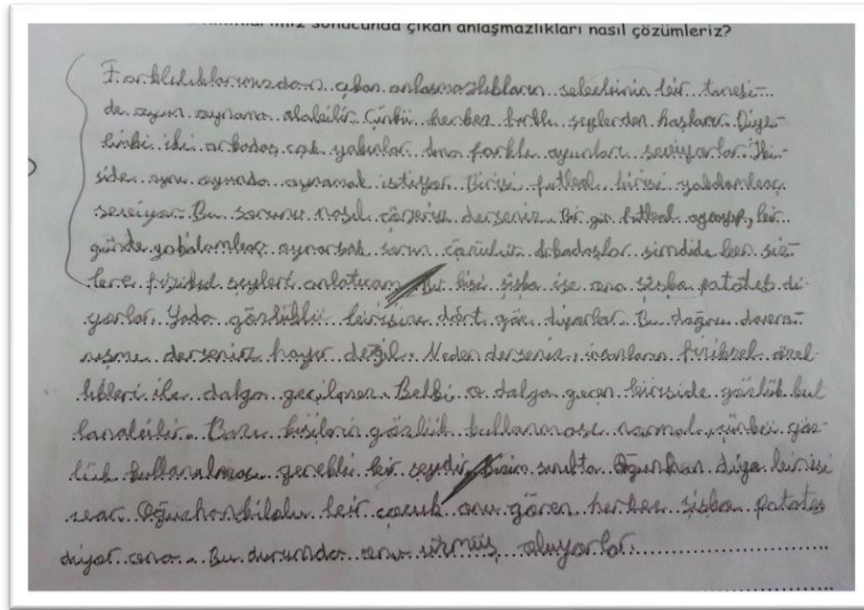 sonucunda çıkan anlaşmazlıkları nasıl çözümleriz?
Farklılıklarımızdan çıkan anlaşmazlıkların bir tanesi-
de oyun oynama olabilir. Çünkü herkez farklı şeylerden hoşlanır. Diye-
limki iki arkadaş çok yakınlar. Ama farklı oyunları seviyorlar. İki-
side aynı oyunda oynamak istiyor. Birisi futbol birisi
seviyor. Bu sorunu nasıl çözeriz derseniz. Bir gün futbol oynayıp, bir
günde oynarsak sorun çözülür. Arkadaşlar simdide ben siz-
lere fiziksel şeyleri anlatıcam. Bir kişi şişko ise ona şişko patates di-
yorlar. Yada gözlüklü birisine dört göz diyorlar. Bu doğru davra-
nışmı derseniz hayır değil. Neden derseniz, insanların fiziksel özel-
likleri ile dalga geçilmez. Belki o dalga geçen biriside gözlük kul
lanabilir. Bazı kişilerin gözlük kullanması normal, çünkü göz-
lük kullanılması gerekli bir şeydir. Bizim sınıfta Oğuzhan diye birisi
var. Oğuzhan kilolu bir çocuk onu gören herkez şişko patates
diyor ona. Bu durumda onu üzmüş oluyorlar.